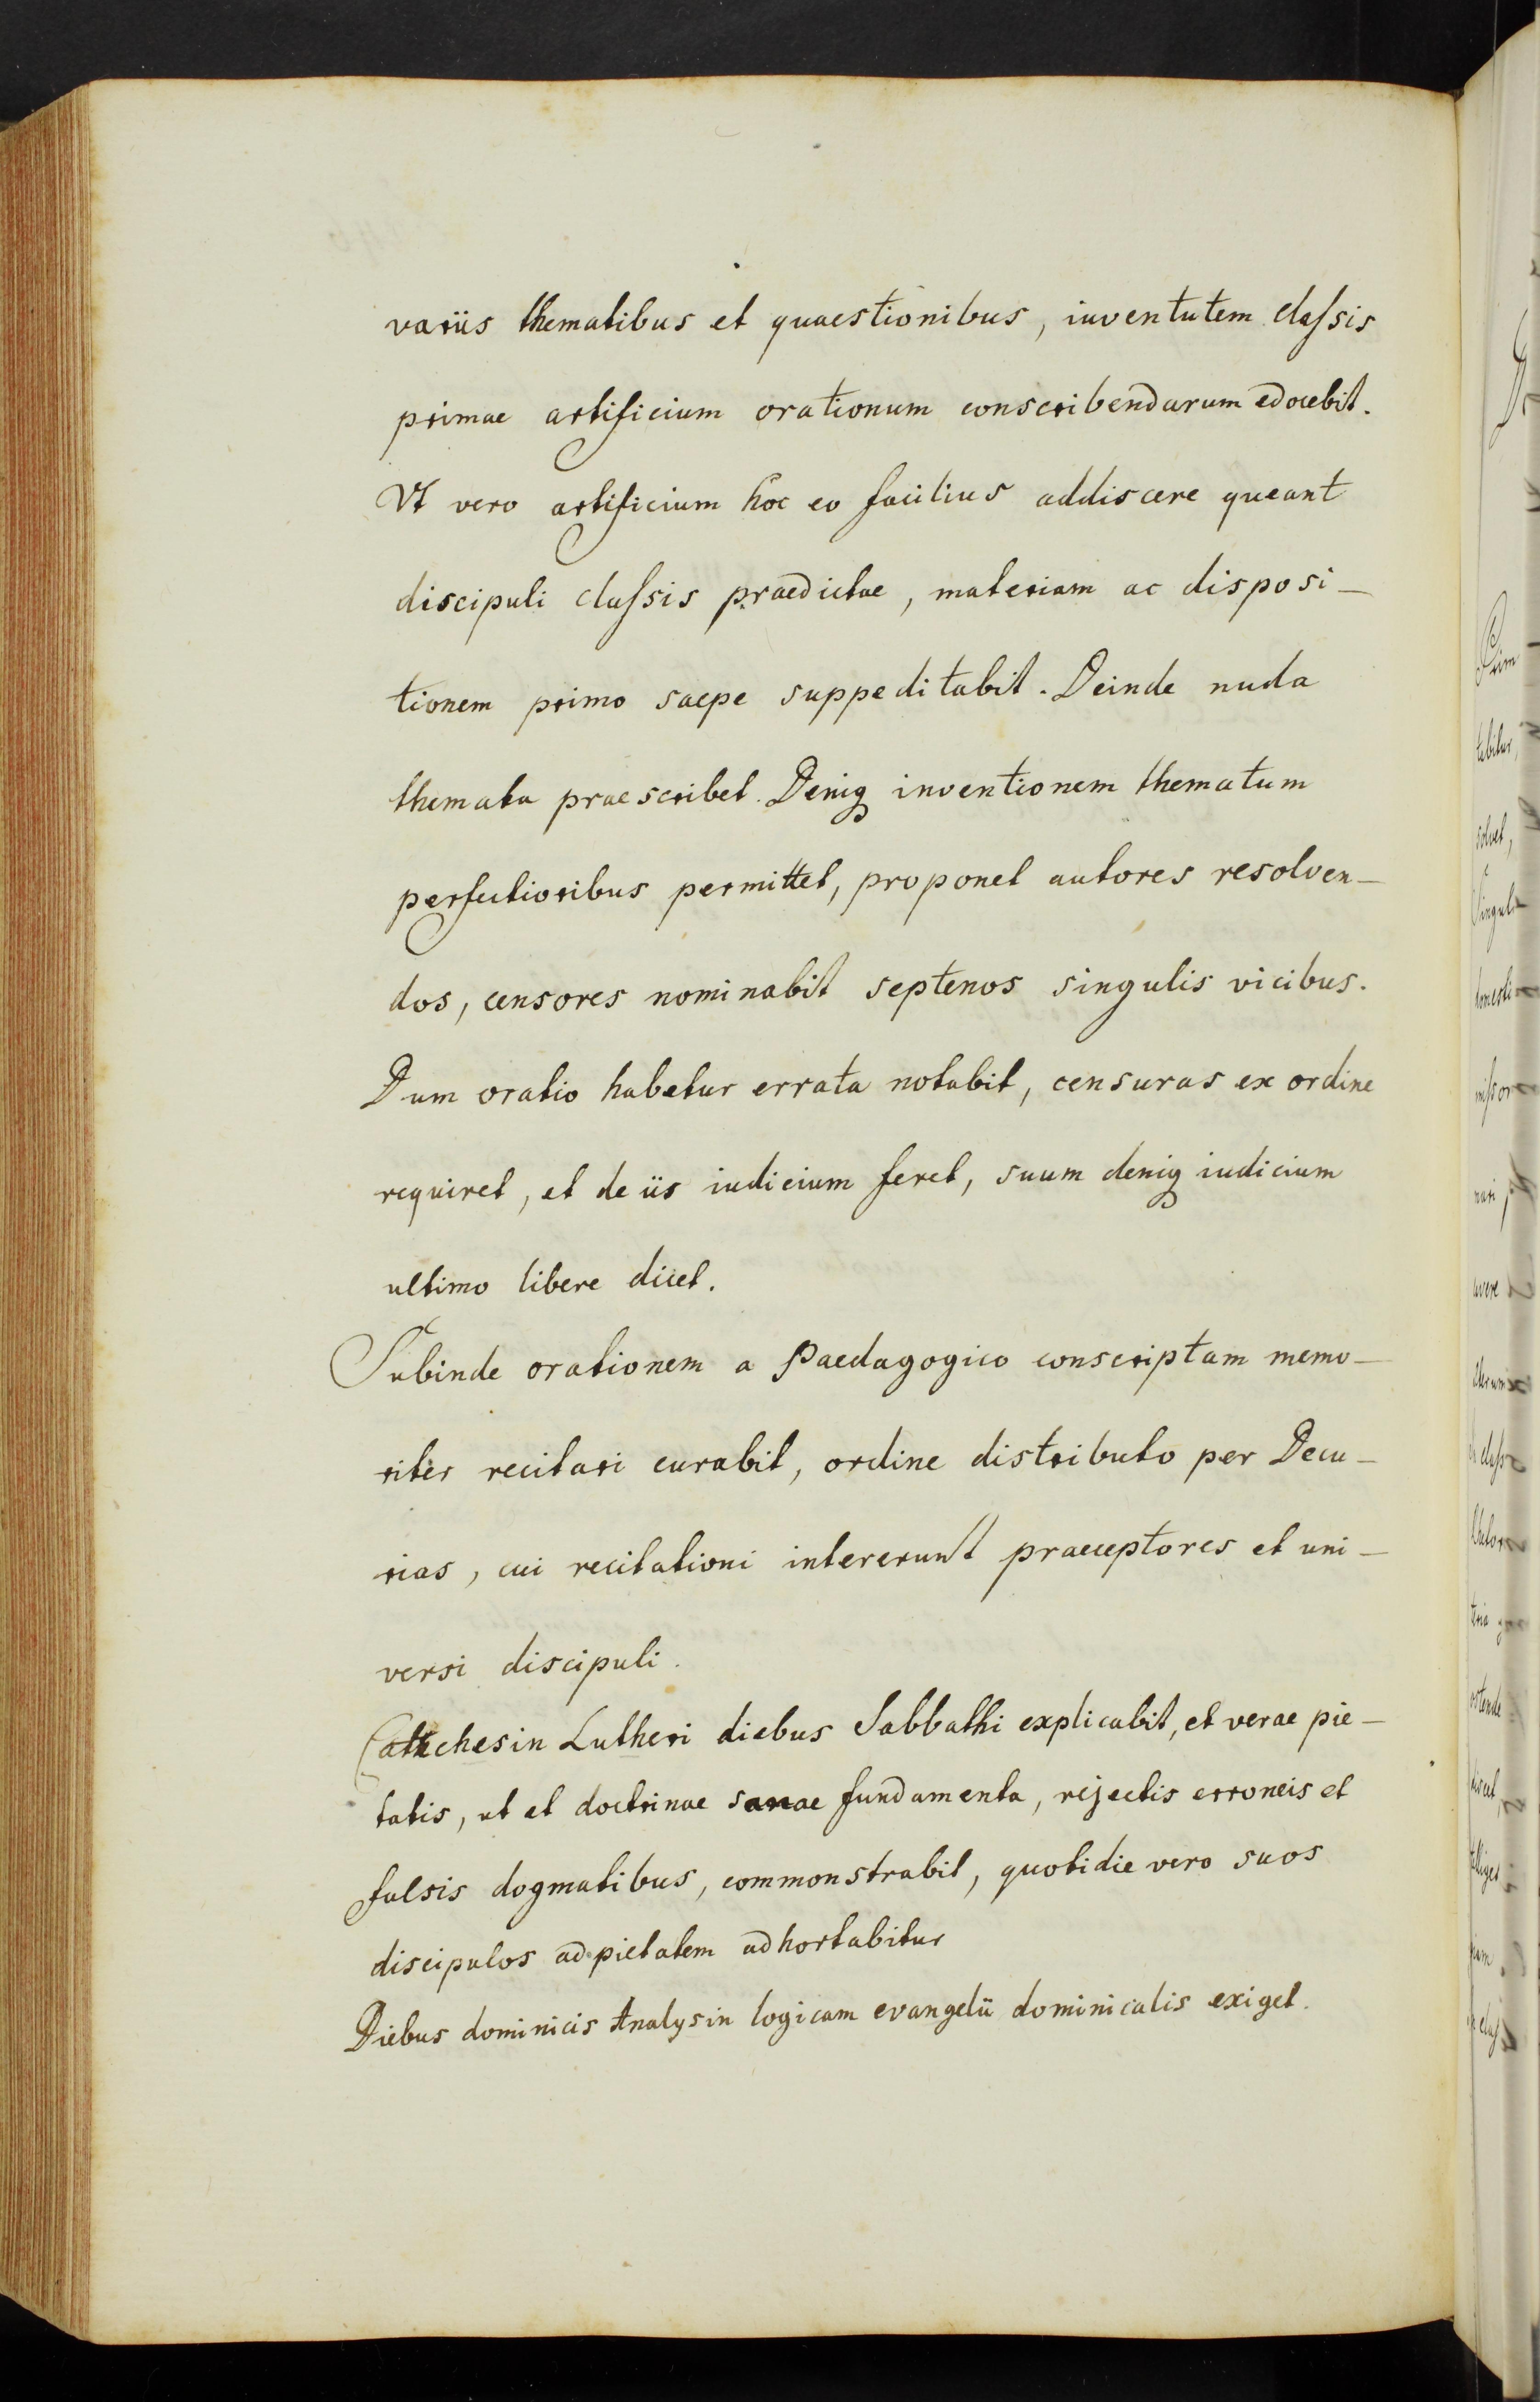 variis thematibus et quaestionibus, iuventutem claſsis
primae artificium orationum conscribendarum edocebit.
Vt vero artificium hoc eo facilius addiscere queant
discipuli claſsis praedictae, materiam ac disposi-
tionem primo saepe suppeditabit. Deinde nuda
themata praescribet. Deniq inventionem thematum
perfectioribus permittet, proponet autores resolven-
dos, censores nominabit septenos singulis vicibus.
Dum oratio habetur errata notabit, censuras ex ordine
requiret, et de iis iudicium feret, suum deniq iudicium
ultimo libere dicet.
Subinde orationem a Paedagogico conscriptam memo-
riter recitari curabit, ordine distributo per Decu-
rias, cui recitationi intererunt praeceptores et uni-
versi discipuli.
Catechesin Lutheri diebus Sabbathi explicabit, et verae pie-
tatis, ut et doctrinae sanae fundamenta, rejectis erroneis et
falsis dogmatibus, commonstrabit, quotidie vero suos
discipulos ad pietatem adhortabitur
Diebus dominicis Analysin logicam evangelii dominicalis exiget.